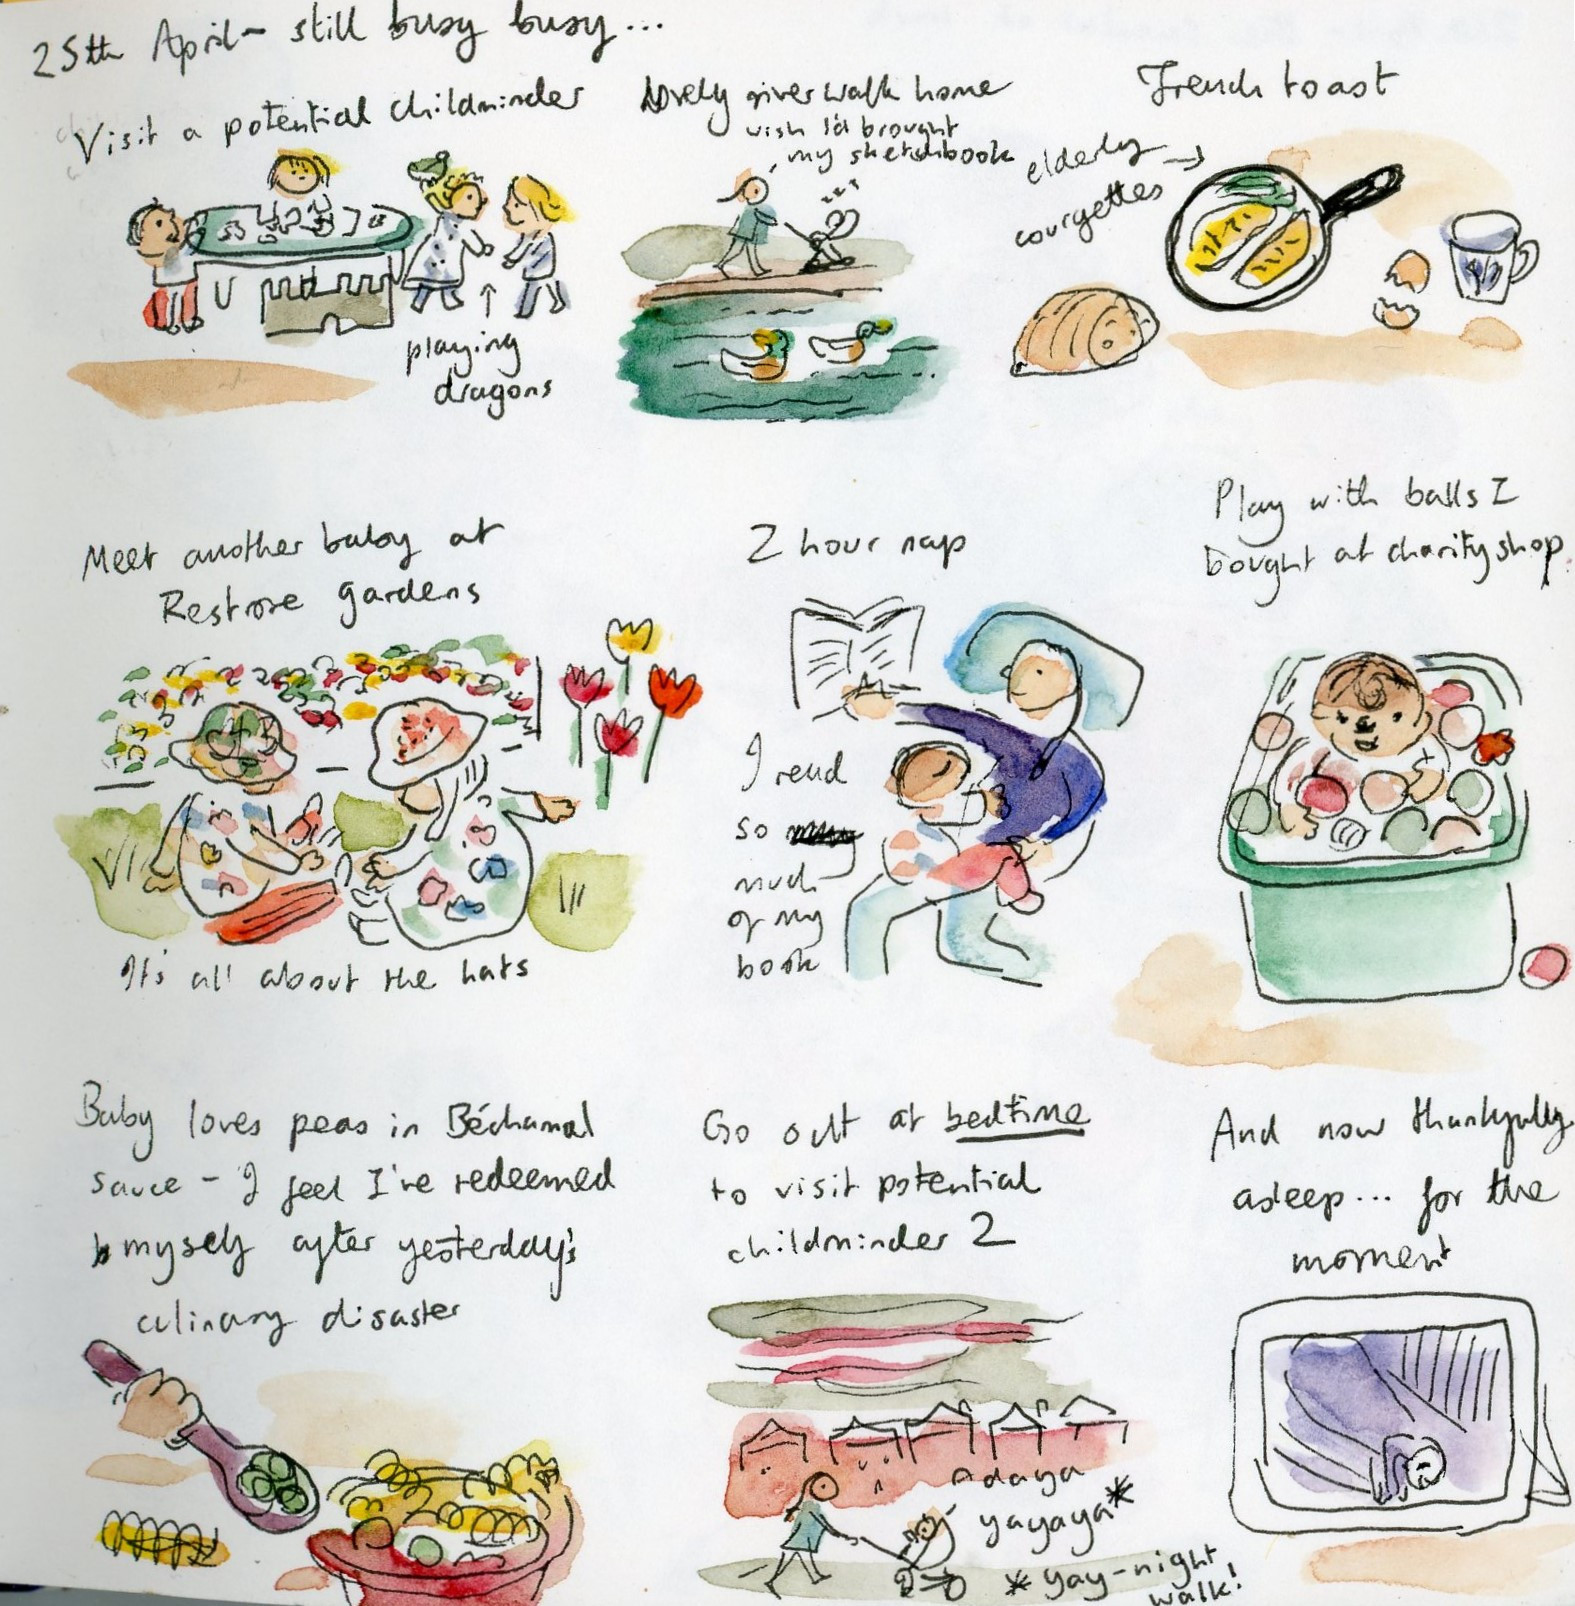 25th April - still busy busy...
Visit a potential childminder
playing
dragons
Lovely river walk home
wish I'd brought
my sketchbook
French toast
elderly →
courgettes
Meet another baby at
Restrose gardens
It's all about the hats
2 hour nap
I read
so
much
of my
book
Play with balls I
bought at charity shop.
Baby loves peas in Béchamal
sauce - I feel I've redeemed
myself after yesterday's
culinary disaster
Go out at bedtime
to visit potential
childminder 2
Adaya
yayaya*
* yay-night
walk!
And now thankfully
asleep... for the
moment